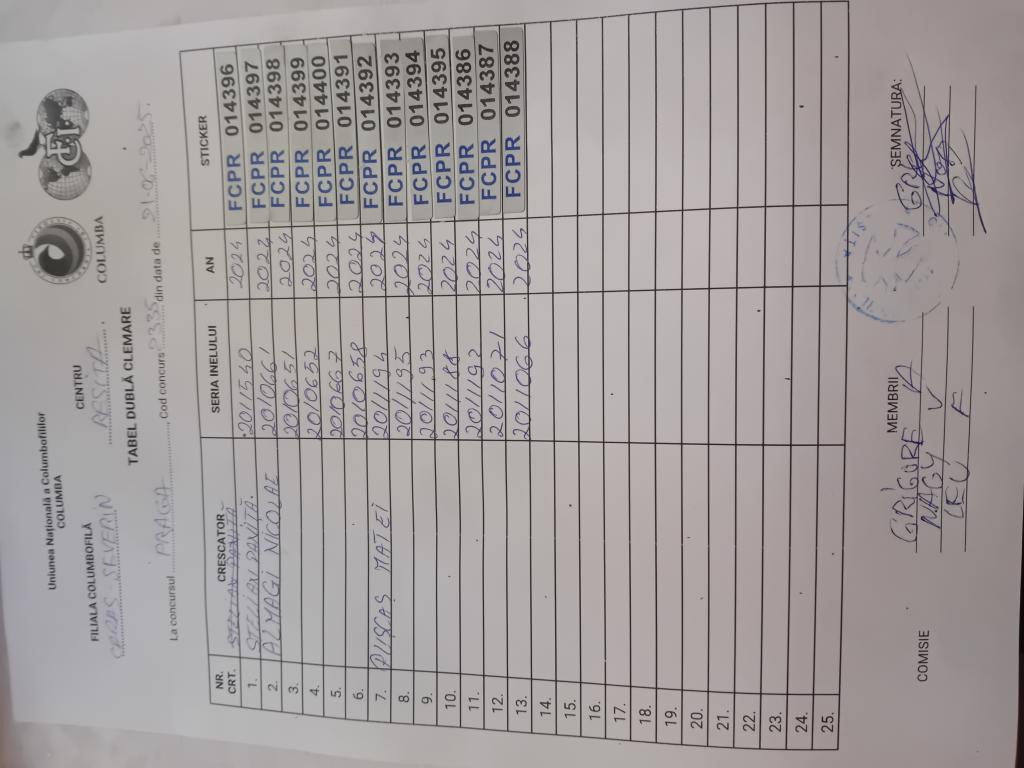 Uniunea Națională a Columbofililor
COLUMBA
FILIALA COLUMBOFILĂ CENTRU
CARAȘ SEVERIN REȘIȚA COLUMBA
FCI
TABEL DUBLĂ CLEMARE
La concursul PRAGA, Cod concurs din data de
NR. CRT. CRESCATOR SERIA INELULUI AN STICKER
STELIAN PANIȚĂ
1. STELIAN PANIȚĂ. 2011540 2024 FCPR 014396
2. ALMAGI NICOLAE 2010661 2024 FCPR 014397
3. 2010651 2024 FCPR 014398
4. 2010652 2024 FCPR 014399
5. 2010667 2024 FCPR 014400
6. 2010658 2024 FCPR 014391
7. PUSCAS MATEI 2011194 2024 FCPR 014392
8. 2011195 2024 FCPR 014393
9. 2011193 2024 FCPR 014394
10. 2011188 2024 FCPR 014395
11. 2011192 2024 FCPR 014386
12. 2011071 2024 FCPR 014387
13. 2011066 2024 FCPR 014388
14.
15.
16.
17.
18.
19.
20.
21.
22.
23.
24.
25.
COMISIE MEMBRII SEMNATURA:
GRIGORE A
NAGY V
LEU F